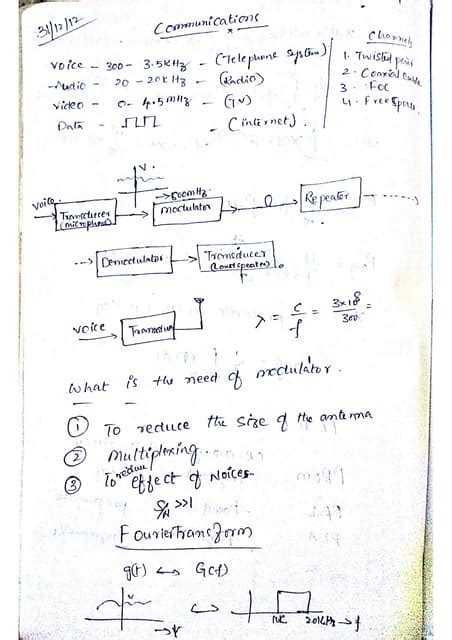 31/12/12
Communications
Voice - 300 - 3.5KHz - (Telephone system)
-Audio - 20 - 20KHz - (Radio)
Video - 0 - 4.5MHz - (TV)
Data - - (internet).
Channels
1. Twisted pair
2. Coaxial cable
3. FOC
4. Free space
V.
500MHz
voice
Transducer
(microphone)
modulator
Repeater
Demodulator
Transducer
(Loud speaker)
voice
λ = c/f = 3x10^8/300 =
What is the need of modulator.
① To reduce the size of the antenna
② Multiplexing.
③ To reduce effect of Noices
S/N >>1
Fourier Transform
g(t) ↔ G(f)
V
↔
20KHz → f